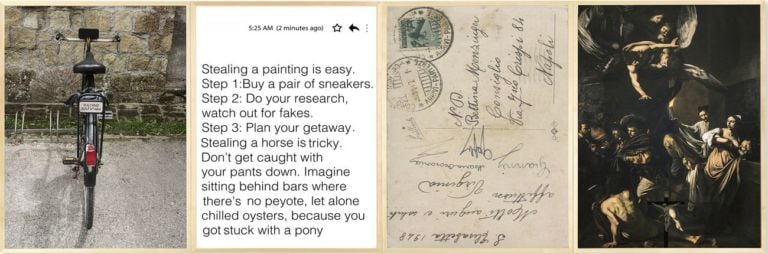 5:25 AM (2 minutes ago)
Stealing a painting is easy.
Step 1:Buy a pair of sneakers.
Step 2: Do your research,
watch out for fakes.
Step 3: Plan your getaway.
Stealing a horse is tricky.
Don't get caught with
your pants down. Imagine
sitting behind bars where
there's no peyote, let alone
chilled oysters, because you
got stuck with a pony
Bettina
Consiglio
Via Crispi 84
Napoli
S. Elisabetta 1948
Molti auguri e
affettuosi
Virginia